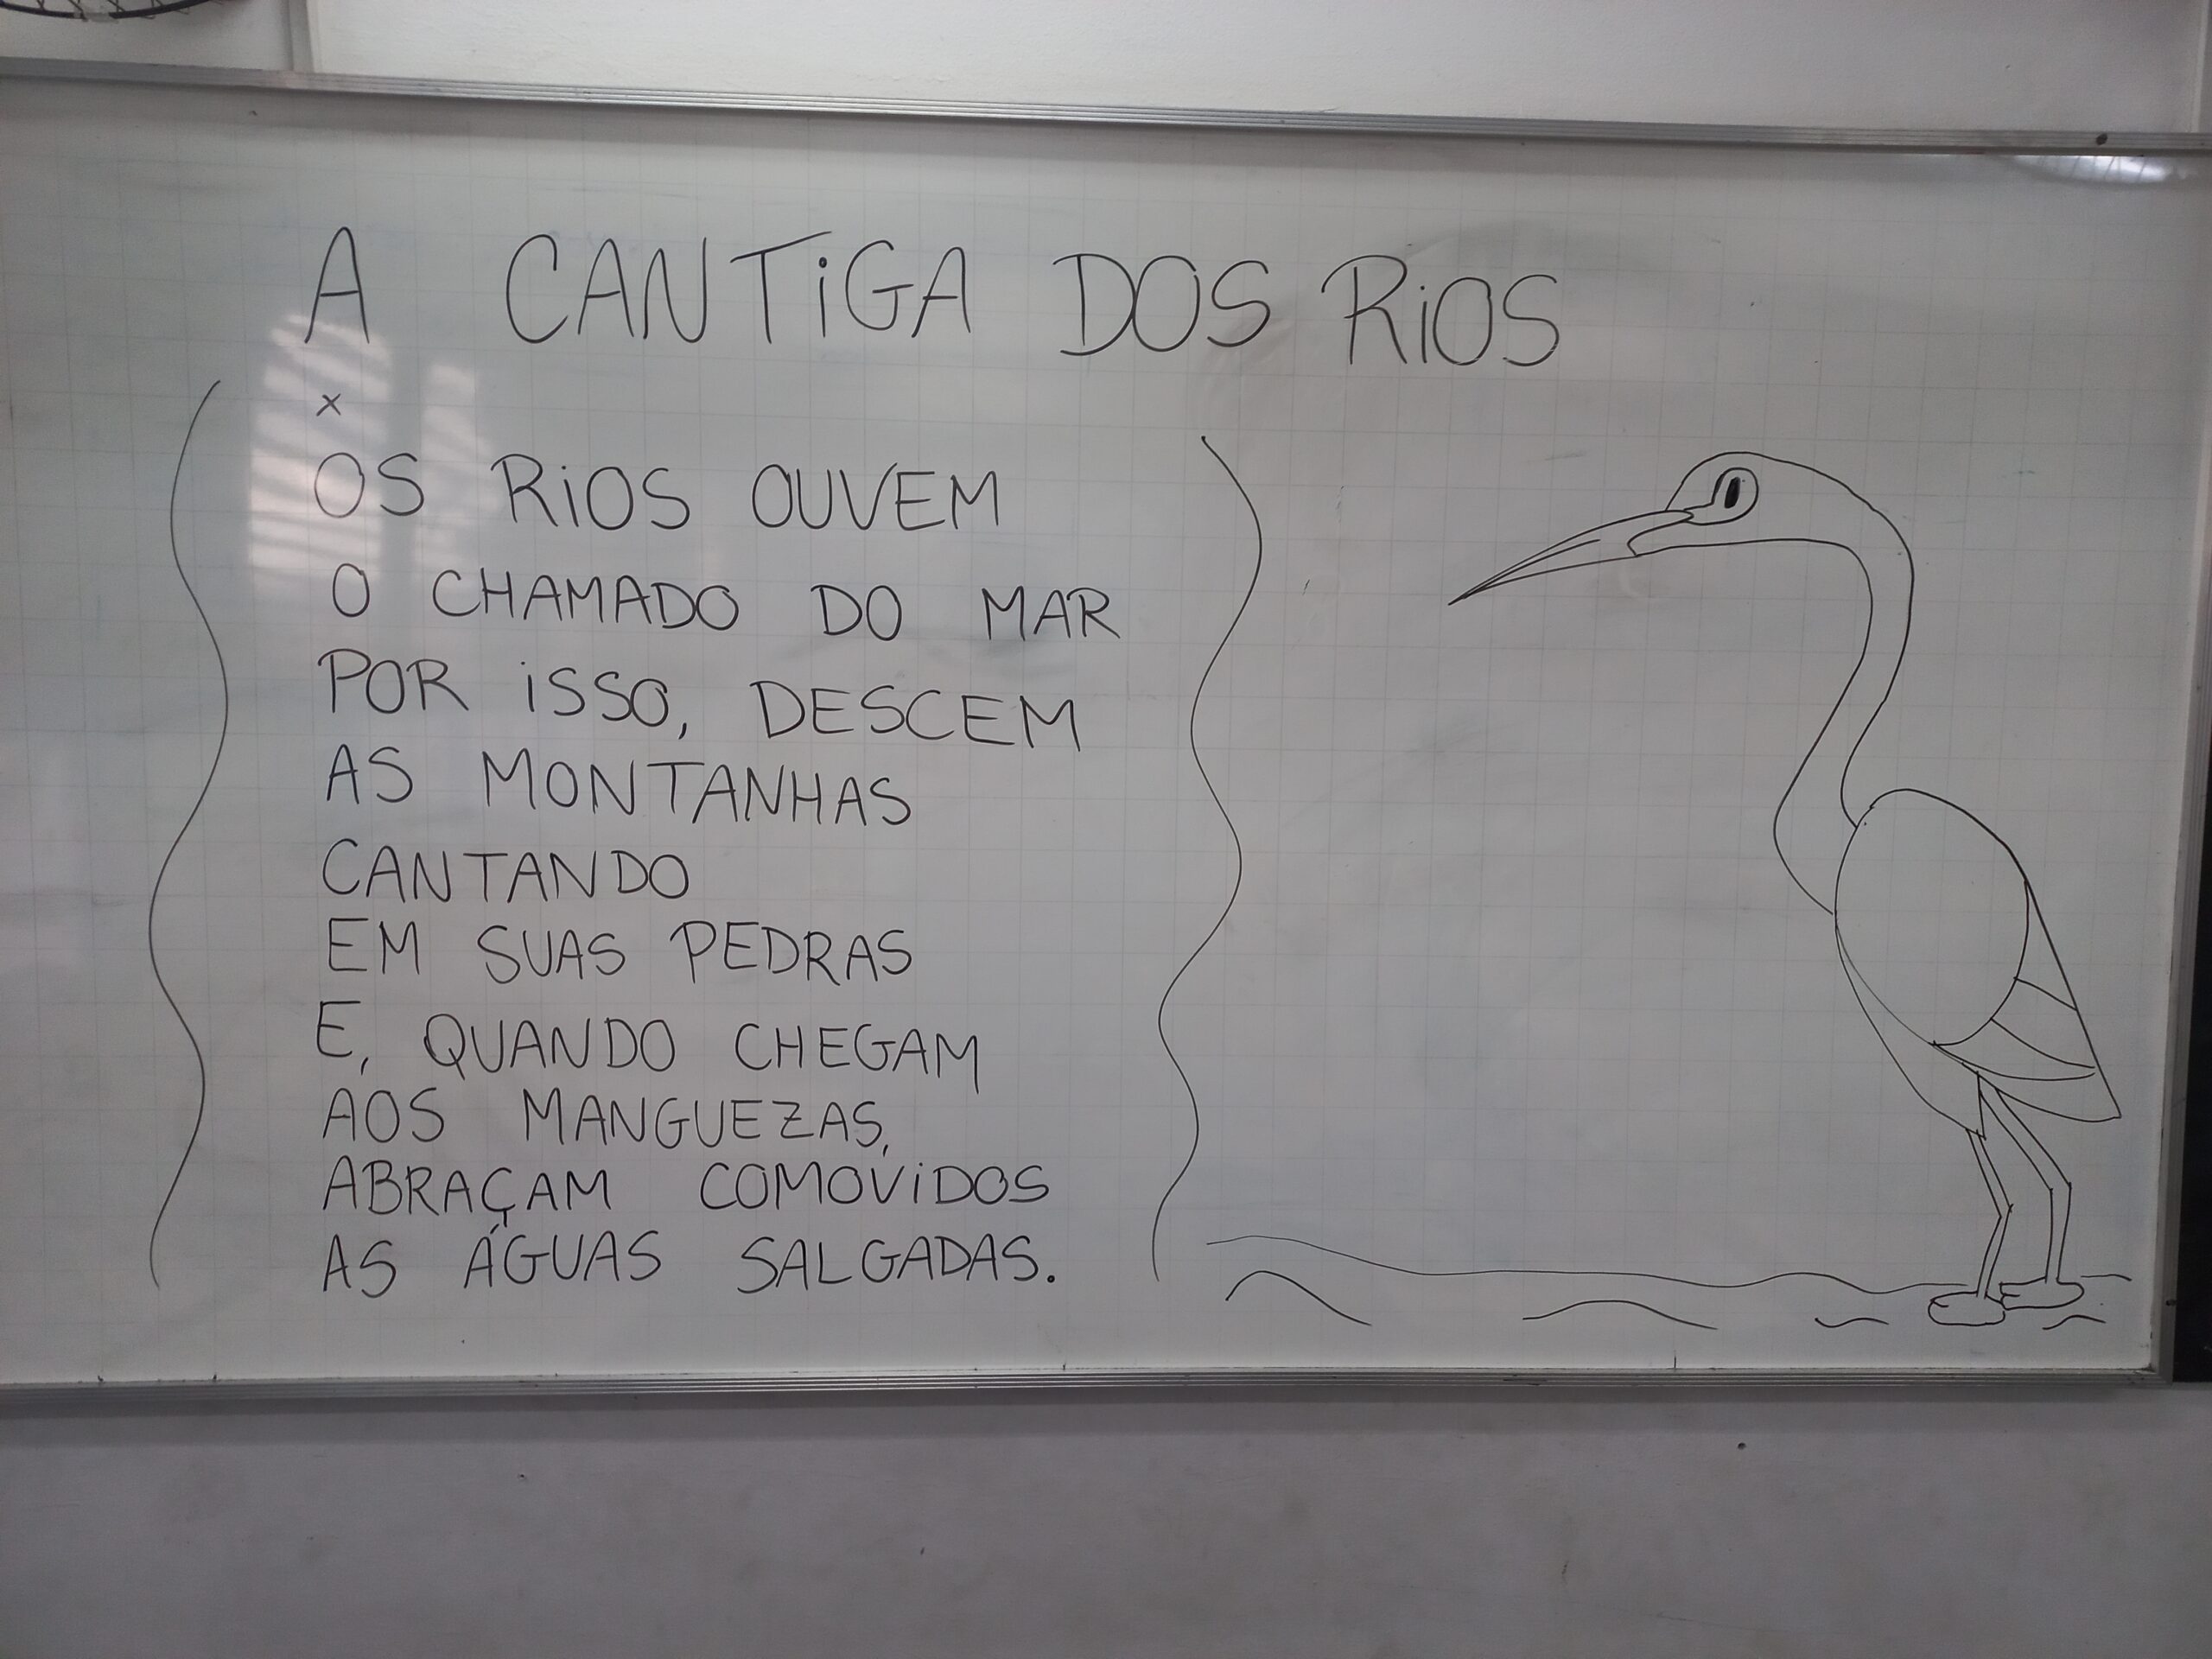 A CANTiGA DOS RiOS
x
OS RiOS OUVEM
O CHAMADO DO MAR
POR iSSO, DESCEM
AS MONTANHAS
CANTANDO
EM SUAS PEDRAS
E, QUANDO CHEGAM
AOS MANGUEZAS,
ABRAÇAM COMOViDOS
AS ÁGUAS SALGADAS.